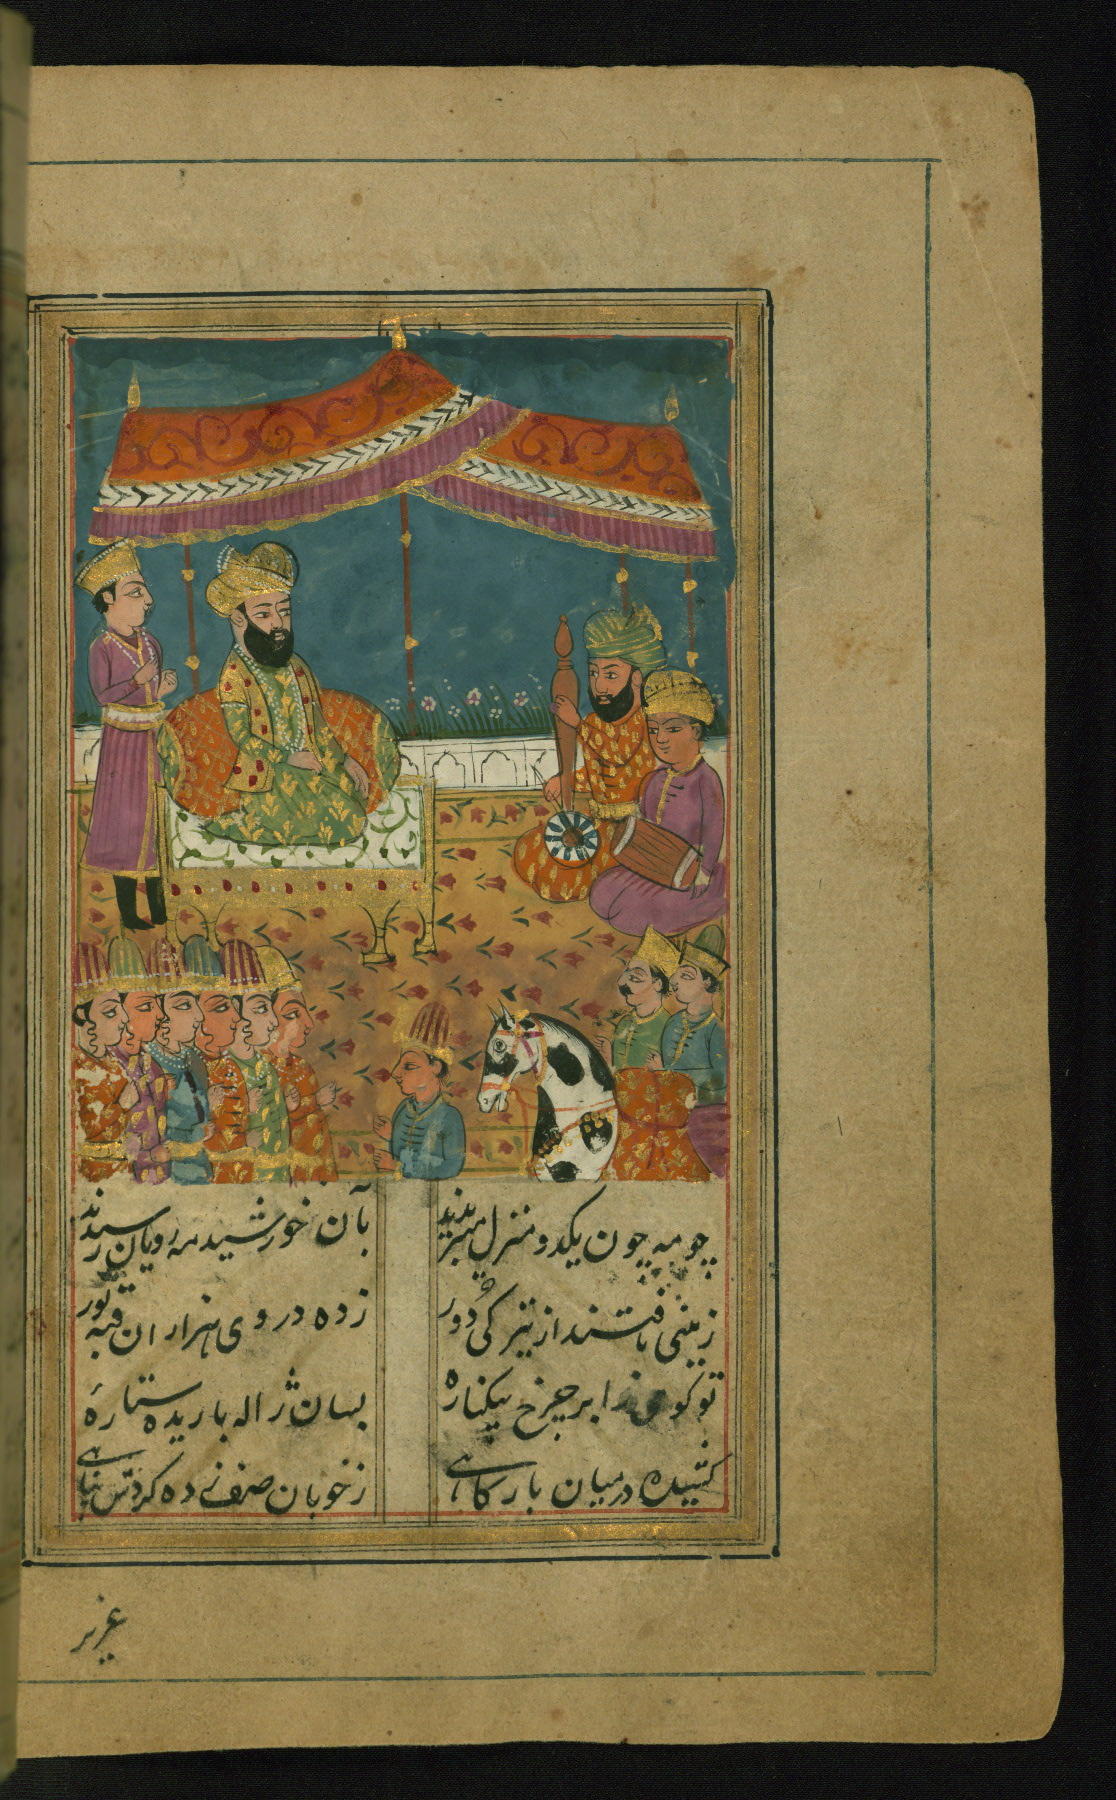 چو مه چون یکدو منزل میبریدند بآن خورشید مه رویان رسیدند
زمینی یافتند از تیرگی دور زده در وی هزاران قبه نور
تو گوی ابر چرخ یکناره بسان ژاله باریده ستارهٔ
کشیده در میان بارکاهی ز خوبان صف زده کردش سپاهی
عزیز